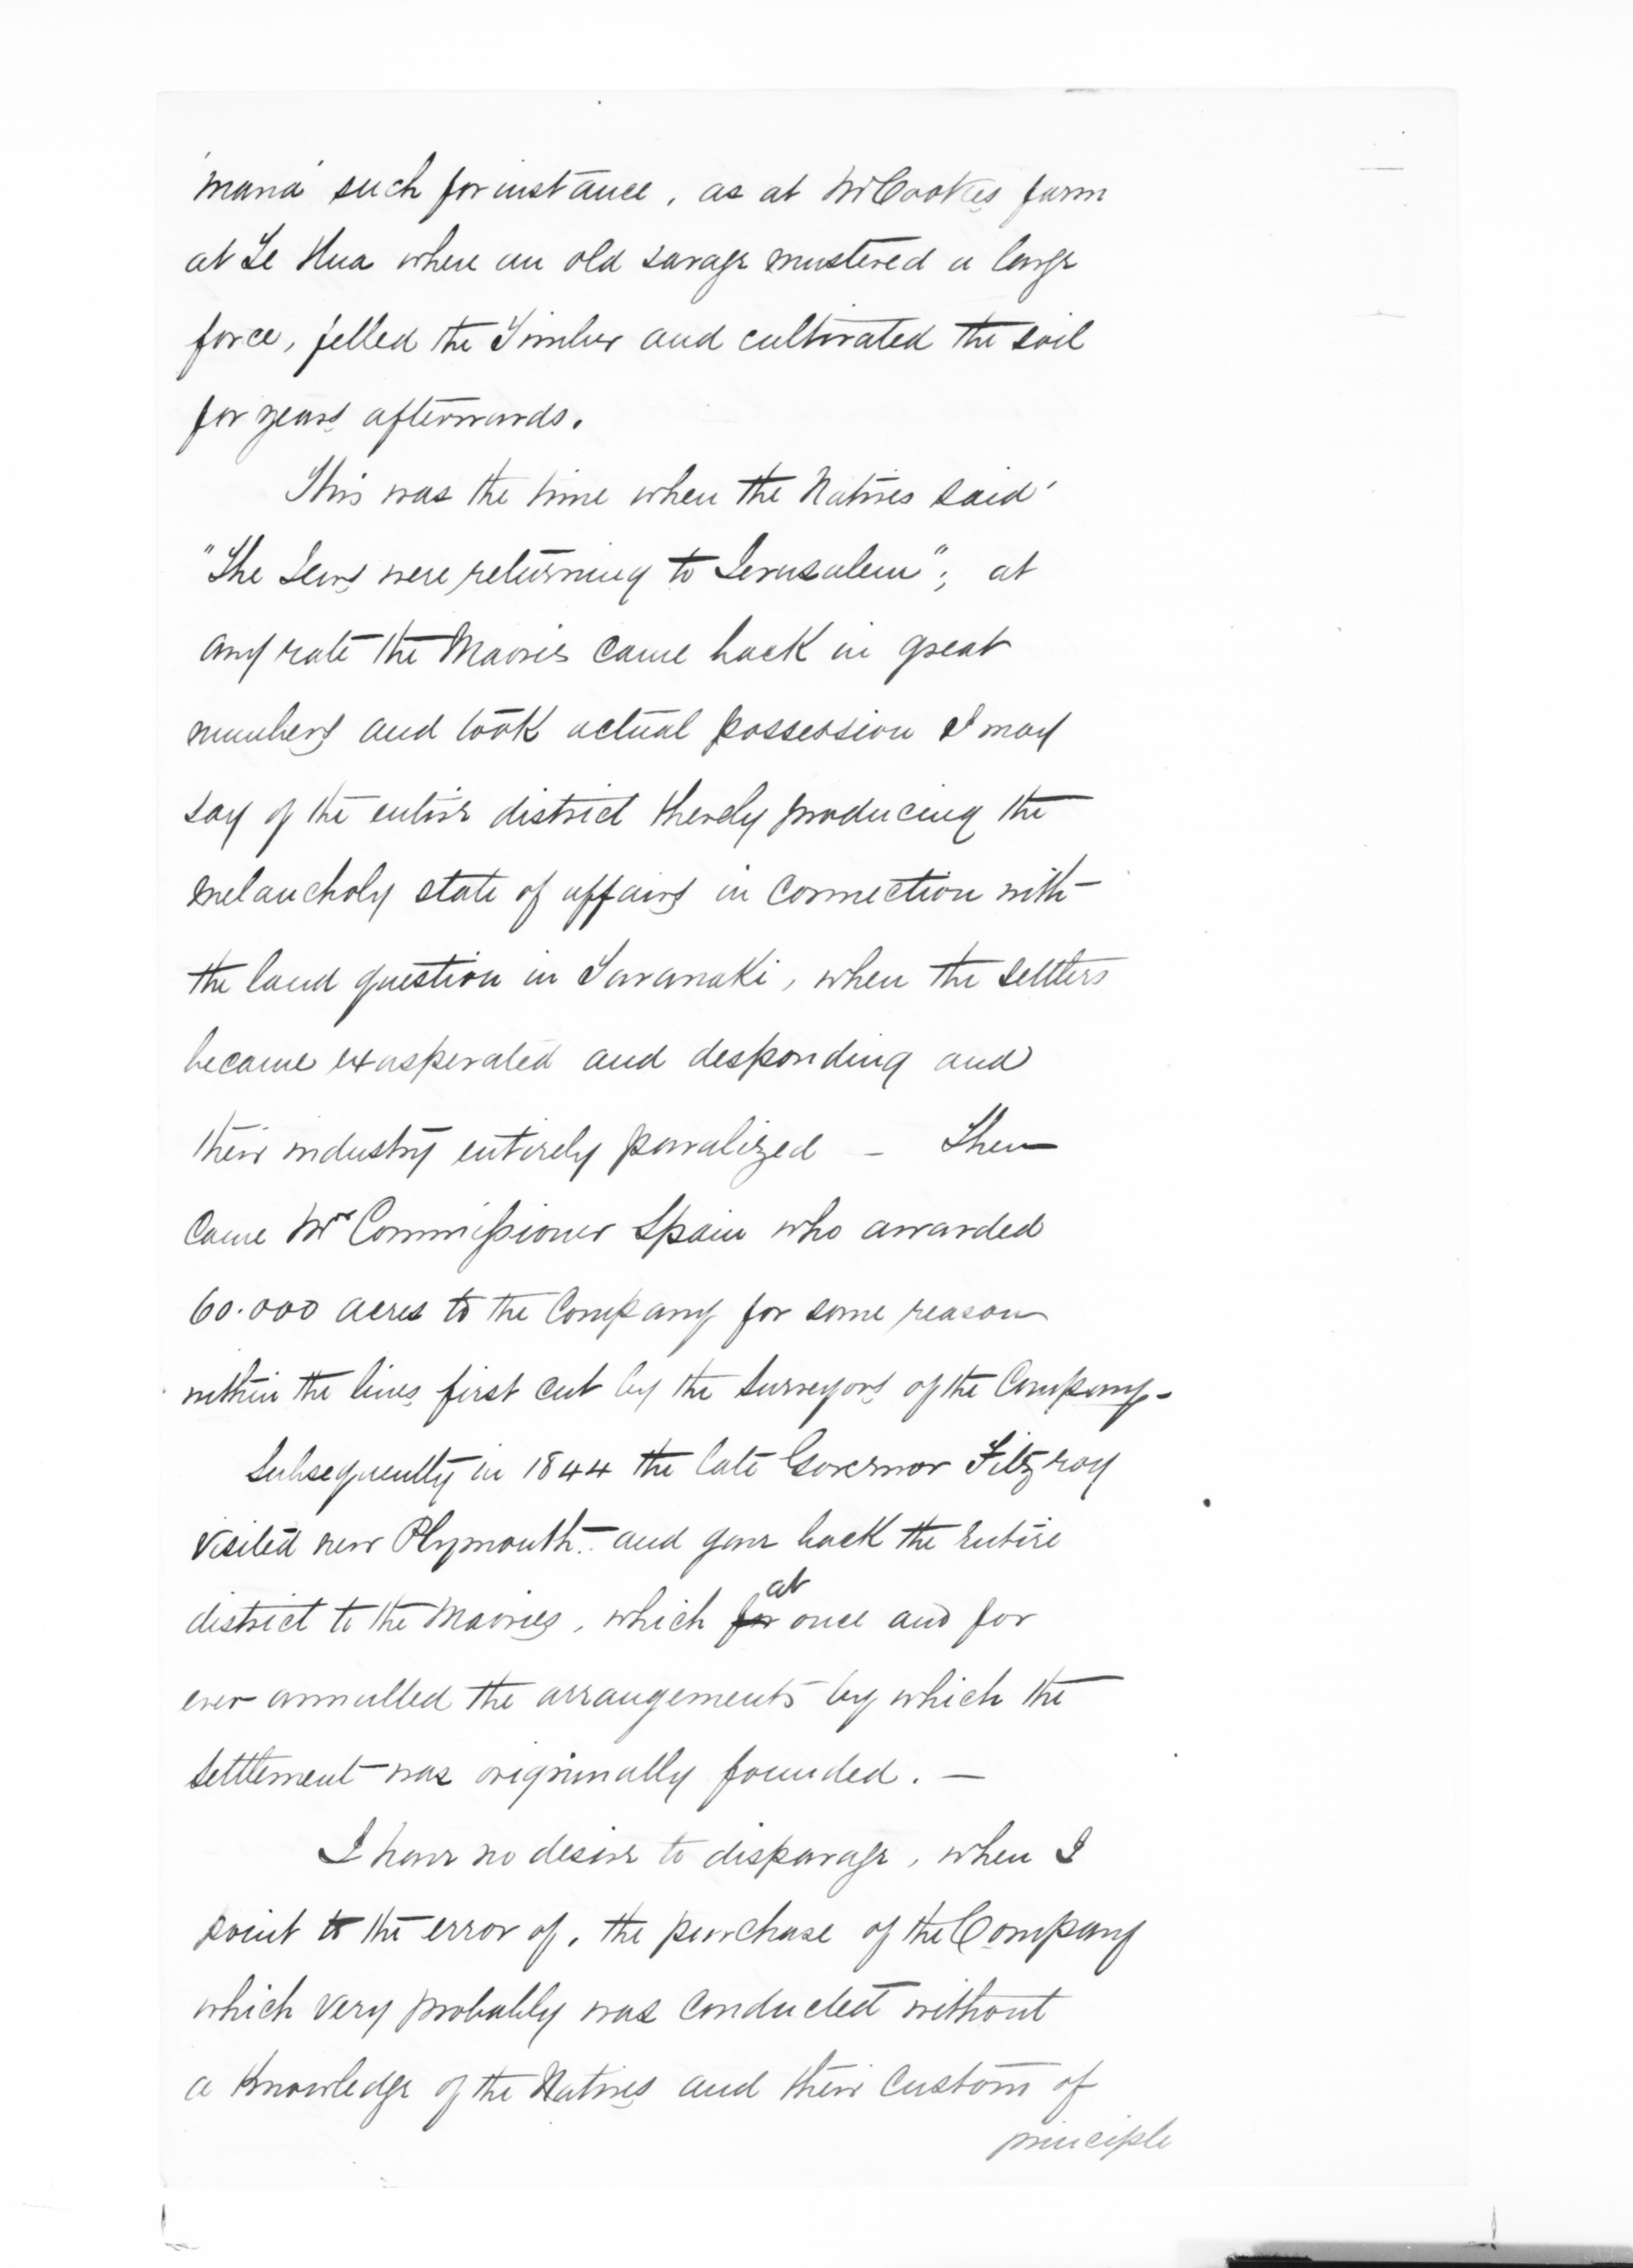 'mana' such for instance, as at Mr Cookes farm
at Te Hua when an old savage mustered a large
force, felled the Timber and cultivated the soil
for years afterwards.
This was the time when the Natives said'
"The Jews were returning to Jerusalem"; at
any rate the Maories came back in great
numbers and took actual possession I may
say of the entire district thereby producing the
melancholy state of affairs in connection with
the land question in Taranaki, when the settlers
became exasperated and desponding and
their industry entirely paralized – Then
came Mr Commissioner Spain who awarded
60.000 acres to the Company for some reason
within the lines first cut by the Surveyors of the Company –
Subsequently in 1844 the late Governor Fitzroy
visited new Plymouth – and gave back the entire
at
district to the Maories, which for once and for
ever annulled the arrangements by which the
settlement was originnally founded. –
I have no desire to disparage, when I
point to the error of, the purchase of the Company
which very probably was conducted without
a knowledge of the Natives and their custom of
principle